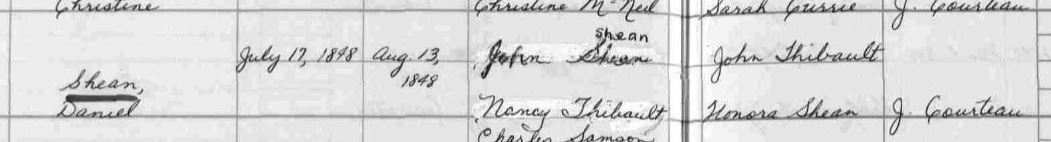 Christine Christine McNeil Sarah Currie J. Courteau
shean
July 17, 1848 Aug. 13, John Shean John Thibault
1848
Shean,
Daniel Nancy Thibault Honora Shean J. Courteau
Charles Samson